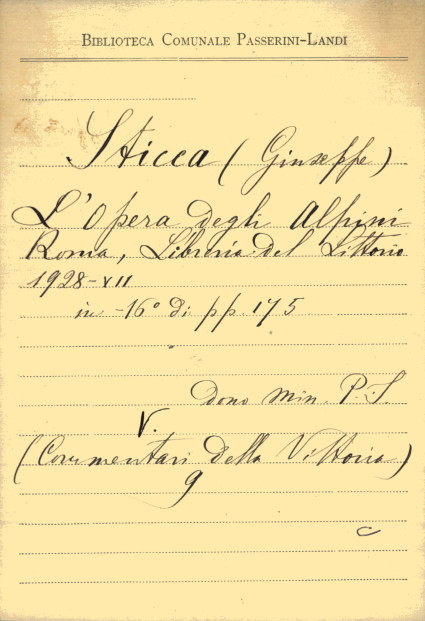 BIBLIOTECA COMUNALE PASSERINI-LANDI
Sticca (Giuseppe)
L'Opera degli Alpini
Roma, Libreria del Littorio
1928-XII
in -16° di pp. 175
Dono Min. P.I.
V.
(Commentari della Vittoria)
9
c